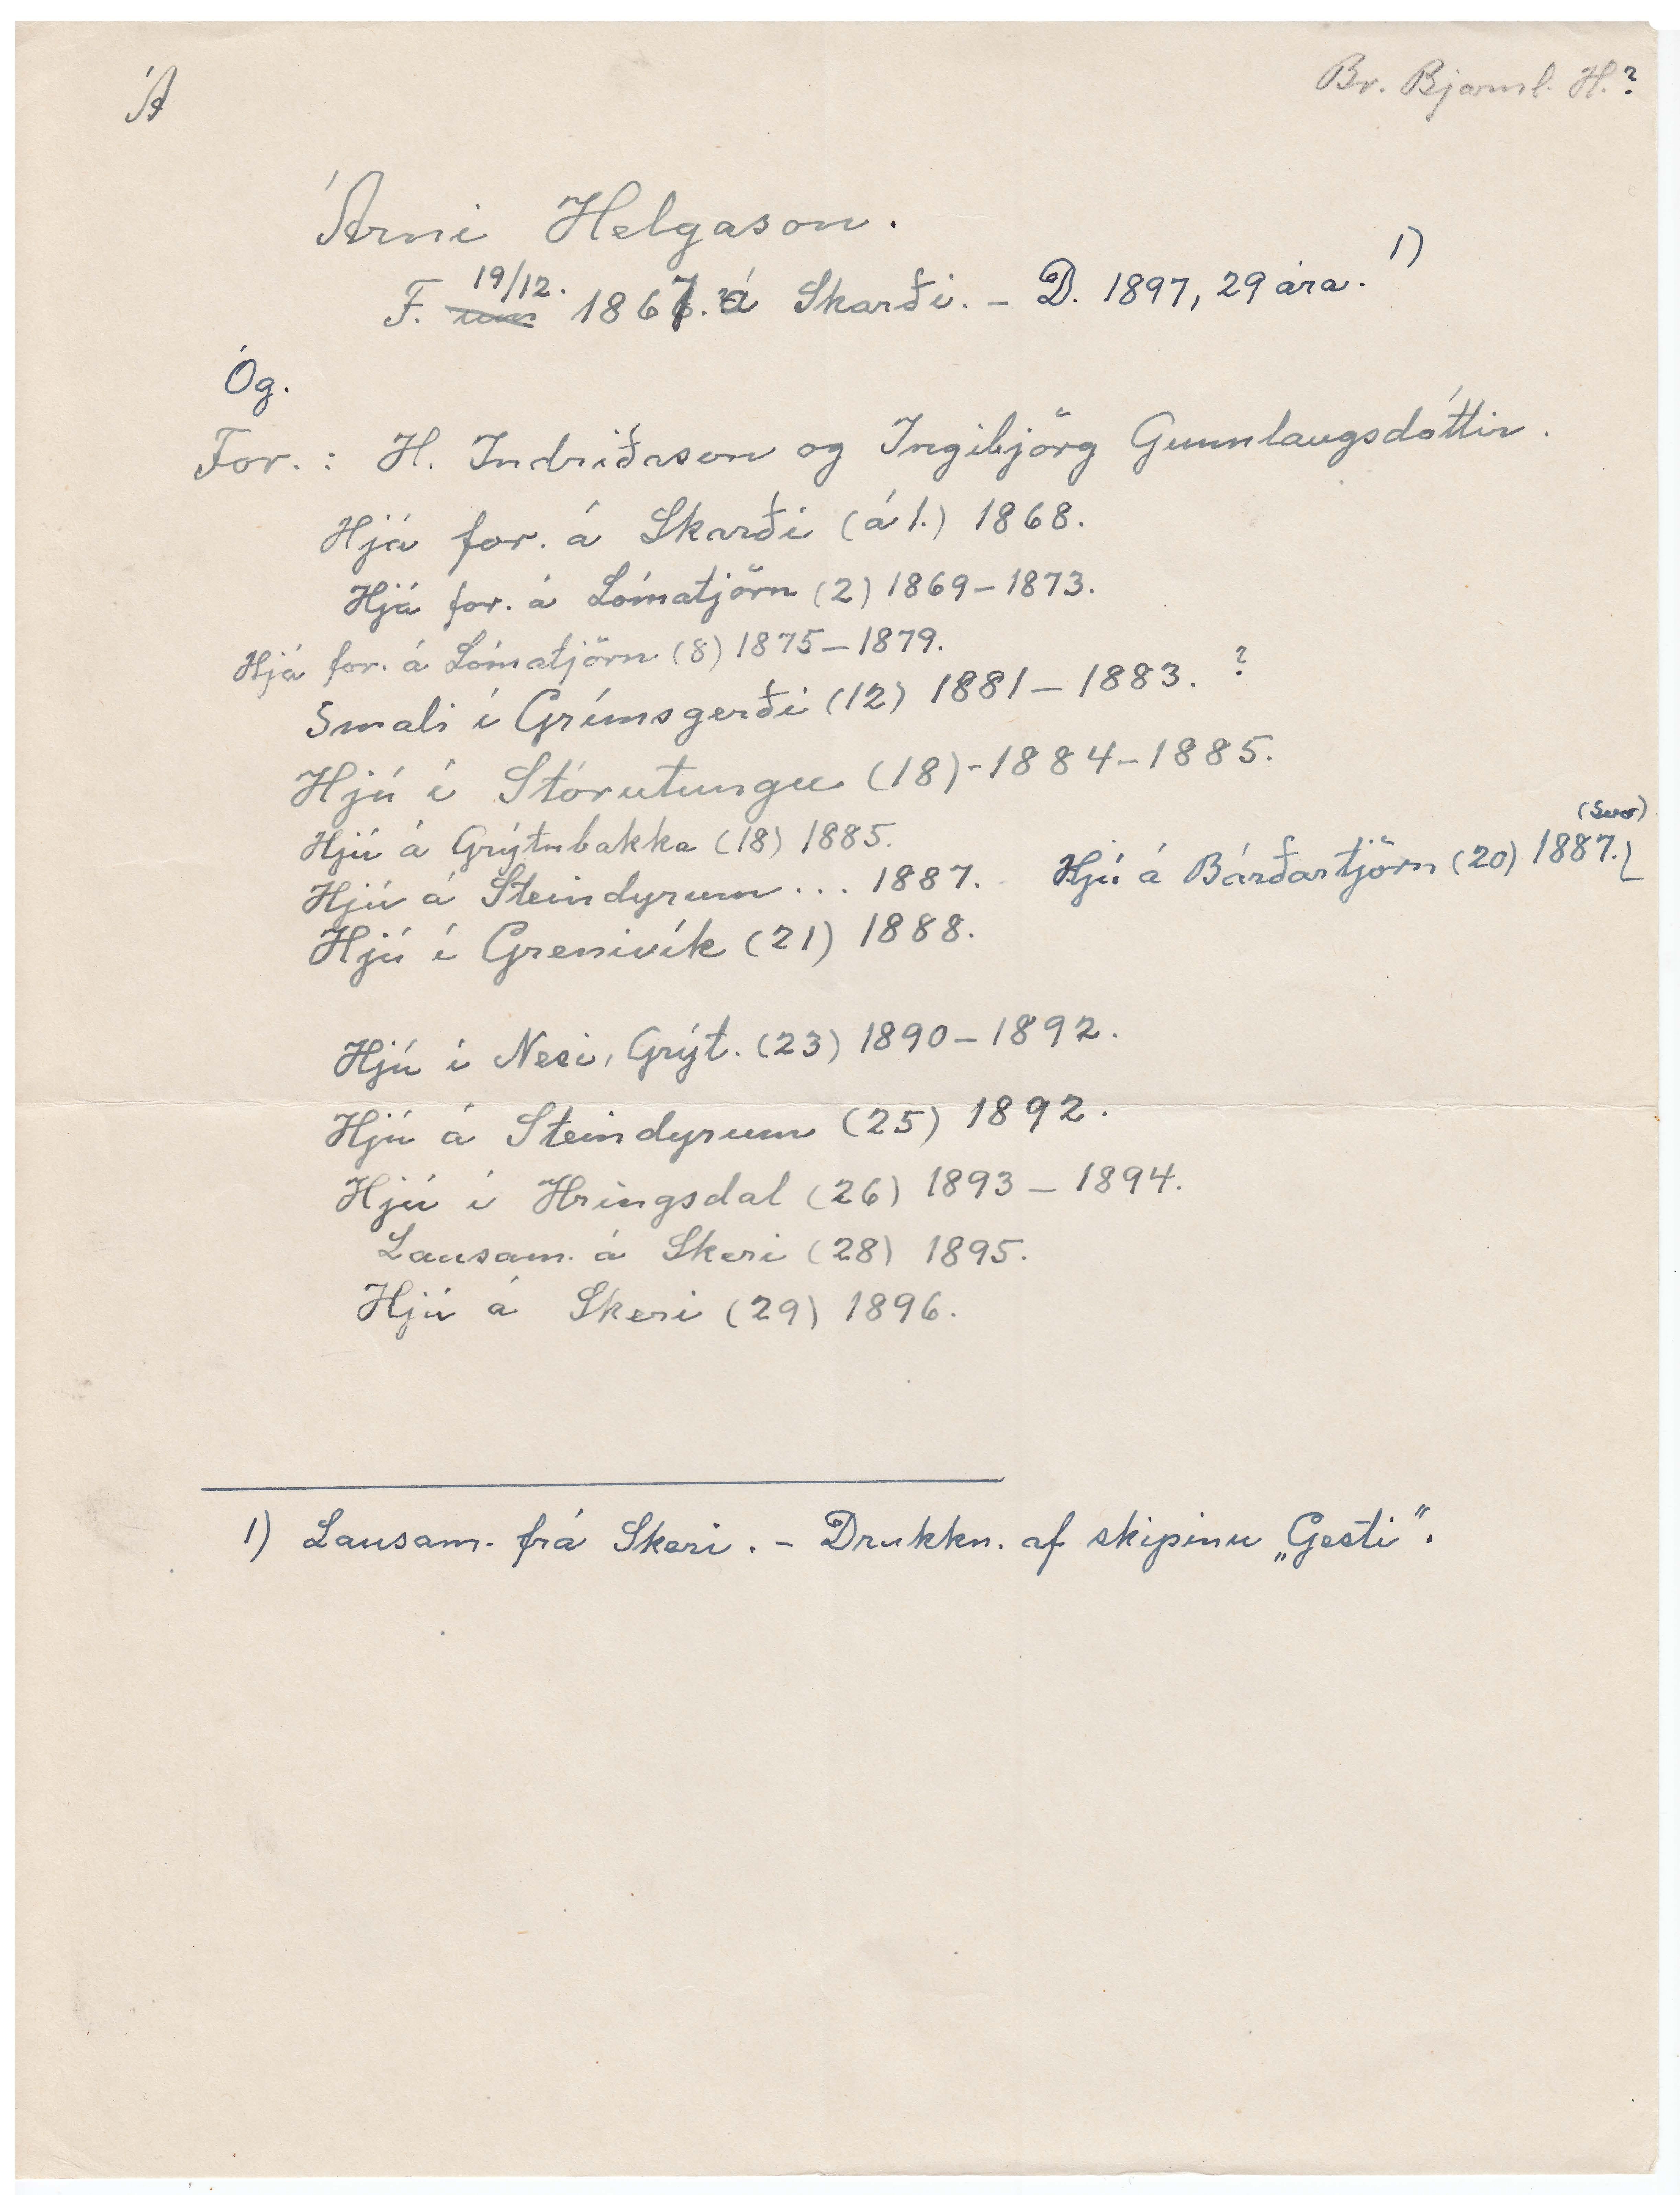 Á
Br. Bjarnl. H.?
Árni Helgason.
F. 19/12. 1867. á Skarði. – D. 1897, 29 ára. 1)
Óg.
For. : H. Indriðason og Ingibjörg Gunnlaugsdóttir.
Hjá for. á Skarði (á 1.) 1868.
Hjá for. á Lómatjörn (2) 1869–1873.
Hjá for. á Lómatjörn (8) 1875–1879.
Smali í Grímsgerði (12) 1881–1883. ?
Hjú í Stórutungu (18)-1884–1885.
Hjú á Grýtubakka (18) 1885.
Hjú á Steindyrum ... 1887. Hjú á Bárðartjörn (20) 1887.
Hjú í Grenivík (21) 1888.
Hjú í Nesi, Grýt. (23) 1890–1892.
Hjú á Steindyrum (25) 1892.
Hjú í Hringsdal (26) 1893 – 1894.
Lausam. á Skeri (28) 1895.
Hjú á Skeri (29) 1896.
1) Lausam. frá Skeri. – Drukkn. af skipinu „Gesti“.